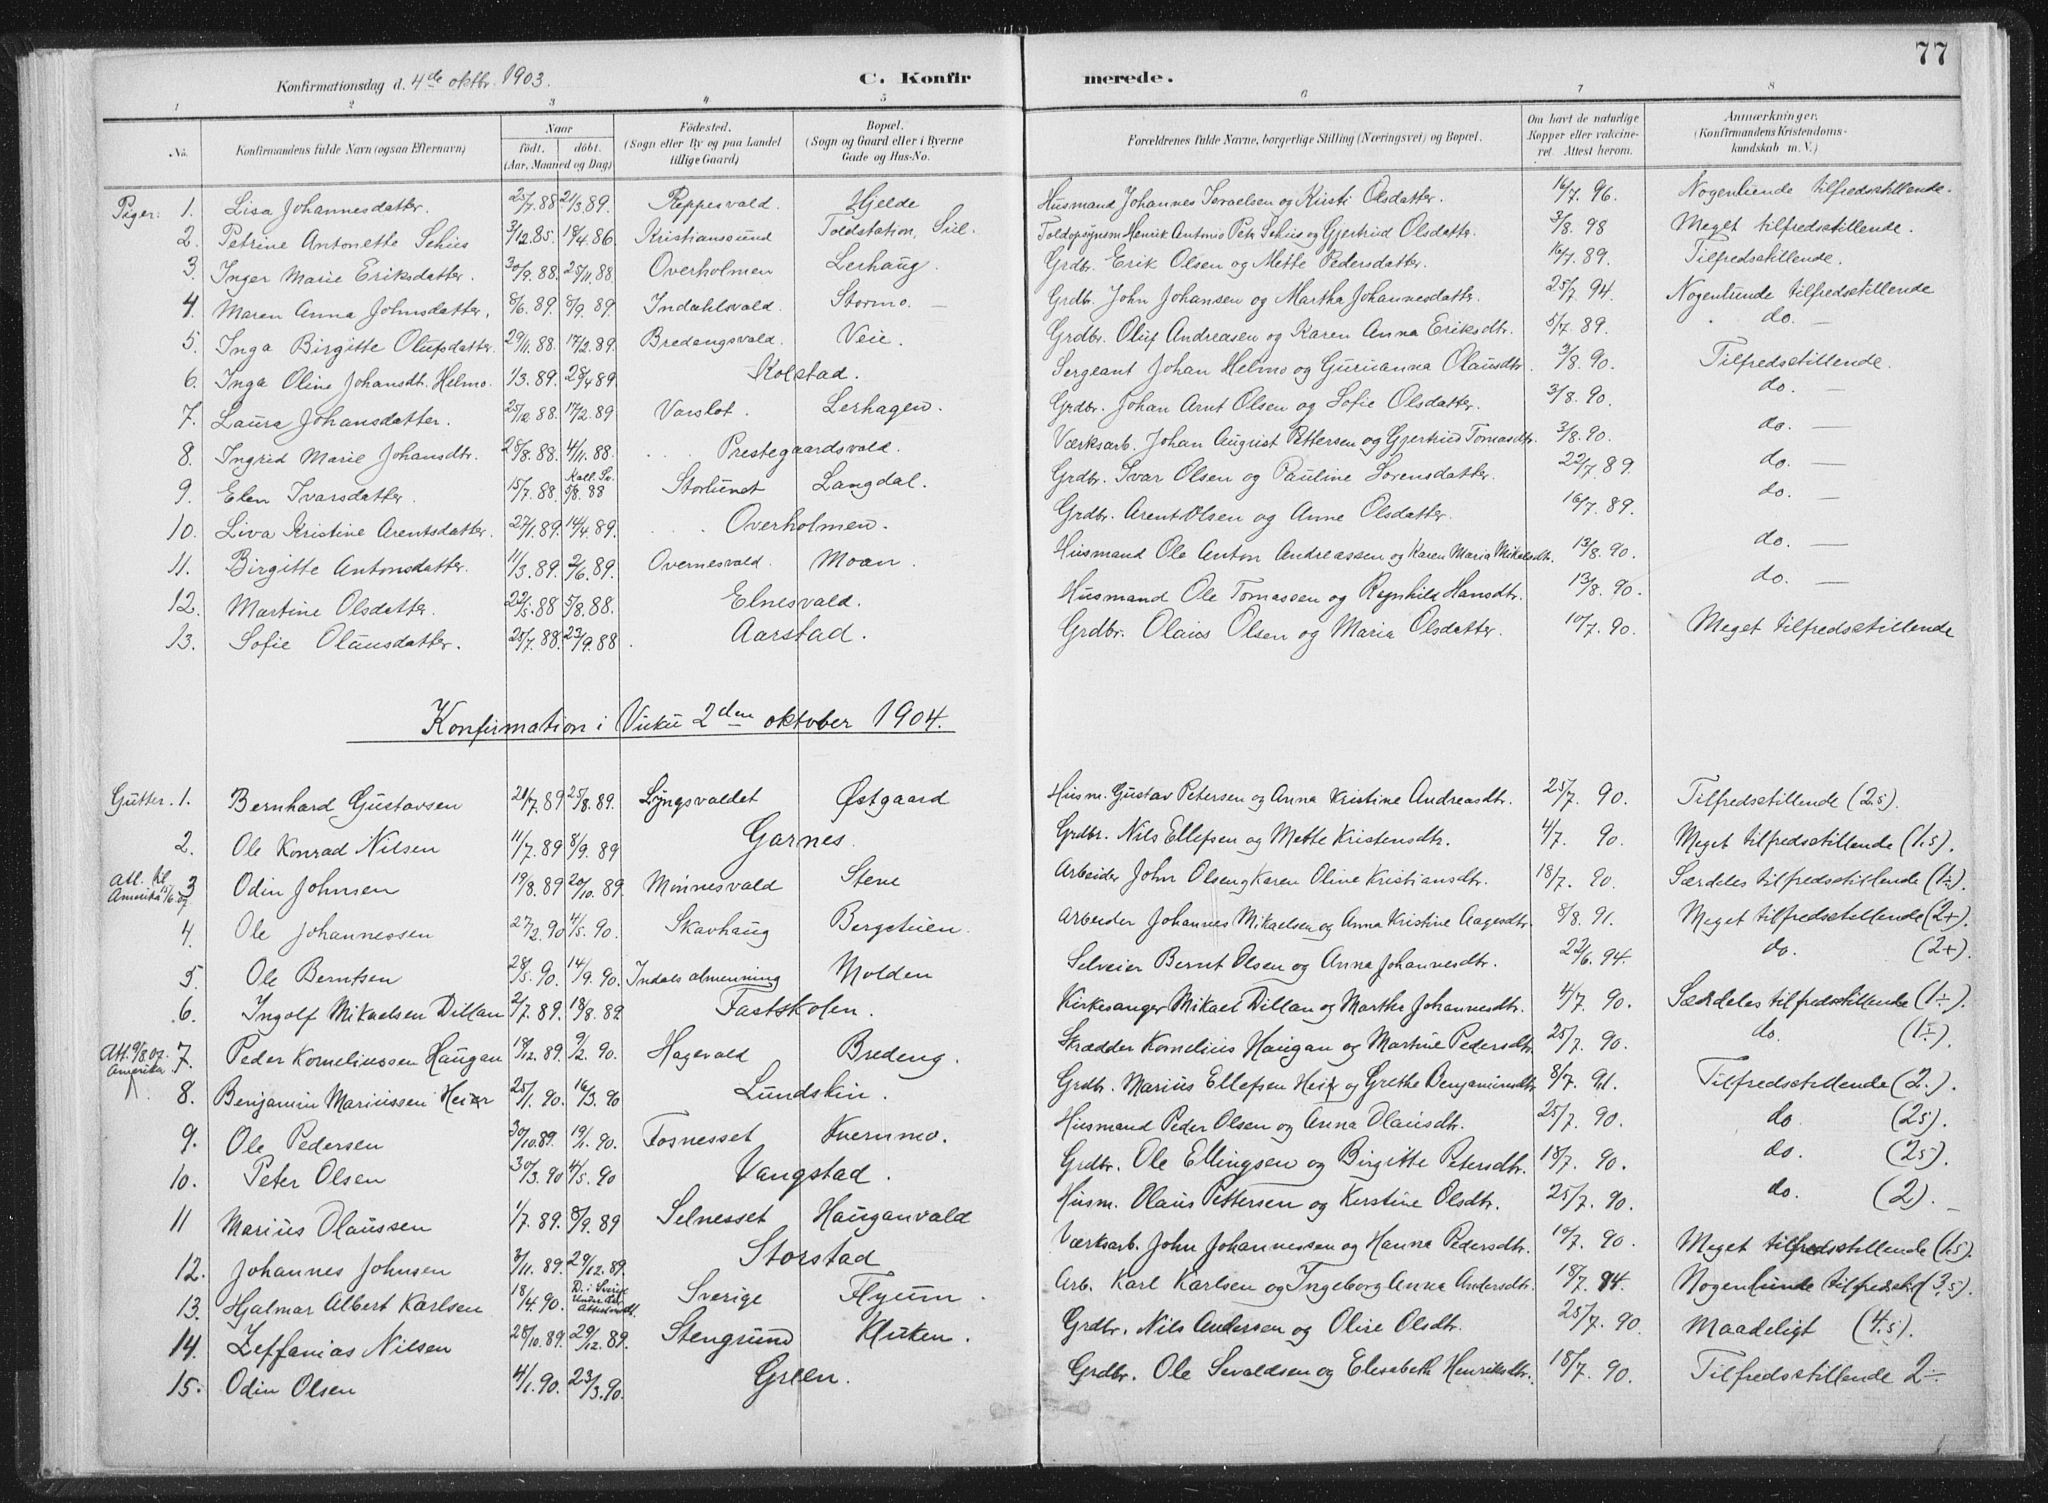 77
Konfirmationsdag d. 4de oktbr. 1903.
C. Konfirmerede.
1 2 3 4 5 6 7 8
No. Konfirmandens fulde Navn (ogsaa Efternavn) Naar født. døbt. (Aar, Maaned og Dag) Fødested. (Sogn eller By og paa Landet tillige Gaard) Bopæl. (Sogn og Gaard eller i Byerne Gade og Hus-No. Forældrenes fulde Navne, borgerlige Stilling (Næringsvei) og Bopæl. Om havt de naturlige Kopper eller vakcineret. Attest herom. Anmærkninger. (Konfirmandens Kristendomskundskab m. V.)
Piger: 1. Lisa Johannesdatter. 25/7.88 21/3.89. Reppesvald. Hjelde Husmand Johannes Israelsen og Kirsti Olsdatter. 16/7. 96. Nogenlunde tilfredsstillende.
2. Petrine Antonette Sehus 3/12.85. 18/4.86. Kristianssund Toldstation, Sul. Toldopsynsm. Henrik Antonio Peter Sehus og Gjertrud Olsdatter. 3/8. 98 Meget tilfredsstillende.
3. Inger Marie Eriksdatter. 30/9.88. 25/11.88 Overholmen Lerhaug. Grdbr. Erik Olsen og Mette Pedersdatter. 16/7.89. Tilfredsstillende.
4. Maren Anna Johnsdatter. 8/6.89. 8/9.89. Indahlsvald. Stormo. Grdb. John Johansen og Martha Johannesdatter. 25/7. 94. Nogenlunde tilfredsstillende
5. Inga Birgitte Olufsdatter. 29/11.88. 17/2.89. Bredengsvald. Veie. Grdbr. Oluf Andreasen og Karen Anna Eriksdtr. 5/7. 89. do. —
6. Inga Oline Johansdt. Helmo. 1/3.89. 28/4.89. Kolstad. Sergeant Johan Helmo og Guruanna Olausdtr. 3/8. 90. Tilfredsstillende.
7. Laura Johansdatter. 25/12.88. 17/2.89. Varslot. Lerhagen. Grdbr. Johan Arnt Olsen og Sofie Olsdatter. 3/8. 90. do. —
8. Ingrid Marie Johansdtr. 28/8.88. 4/11.88. Prestegaardsvald. Værksarb. Johan August Pettersen og Gjertrud Tomasdtr. 3/8.90. do. —
9. Elen Ivarsdatter. 15/7.88. 5/8.88 Storlunet Langdal. Grdbr. Ivar Olsen og Pauline Sorensdatter. 22/7.89. do. —
10. Liva Kristine Arentsdatter. 27/1.89. 14/4.89. Overholmen. Grdbr. Arent Olsen og Anne Olsdatter. 16/7. 89. do. —
11. Birgitte Antonsdatter. 11/3.89. 2/6.89. Overnesvald. Moan. Husmand Ole Anton Andreassen og Karen Maria Mikalsdtr. 13/8.90. do. —
12. Martine Olsdatter. 22/5.88 5/8.88. Elnesvald. Husmand Ole Tomassen og Ragnhild Hansdtr. 13/8. 90. do. —
13. Sofie Olausdatter. 25/7.88. 23/9.88 Aarstad. Grdbr. Olaus Olsen og Maria Olsdatter. 10/7. 90. Meget tilfredsstillende
Konfirmation i Vuku 2den oktober 1904.
Gutter. 1. Bernhard Gustavsen 20/7.89 25/8.89. Lyngsvaldet Østgaard Husm. Gustav Petersen og Anna Kristine Andreasdtr. 25/7. 90. Tilfredsstillende (2.5).
2. Ole Konrad Nilsen 11/7.89 8/9.89 Garnes. Grdbr. Nils Ellefsen og Mette Kristensdtr. 4/7. 90. Meget tilfredsstillende (1.5).
Att. til Amerika 15/6.07 3 Odin Johnsen 19/8.89 20/10.89. Minnesvald Stene Arbeider John Olsen og Karen Oline Kristiansdtr. 18/7. 90. Særdeles tilfredsstillende (1÷).
4. Ole Johannessen 27/2.90 4/5.90. Skavhaug Bergstuen. Arbeider Johannes Mikaelsen og Anna Kristine Aagesdtr. 8/8. 91. Meget tilfredsstillende (2+).
5. Ole Berntsen 28/5.90. 14/9.90. Indals almenning Molden Selveier Bernt Olsen og Anna Johannesdtr. 22/6. 94. do. (2+).
6. Ingolf Mikaelsen Dillan 2/7.89. 18/8.89. Fastskolen. Kirkesanger Mikael Dillan og Martha Johannesdtr. 4/7. 90. Særdeles tilfredsstillende (1÷).
Att. 9/8.07. Amerika 7. Peder Korneliussen Haugan 18/12.89. 9/2.90. Hagevald Bredeng. Skrædder Kornelius Haugan og Martine Pedersdtr. 25/7. 90. do. (1÷).
8. Benjamin Mariussen Heier 25/1.90. 16/3.90 Lundskin. Grdbr. Marius Ellefsen og Grethe Benjaminsdtr. 8/7. 91. Tilfredsstillende (2.).
9. Ole Pedersen 30/10.89. 19/1.90. Fosnesset Kvernmo. Husmand Peder Olsen og Anna Olausdtr. 25/7. 90. do. (2.5).
10. Peter Olsen 30/3.90 4/5.90 Vangstad. Grdbr. Ole Ellingsen og Birgitte Petersdtr. 18/7. 90. do. (2.5).
11 Marius Olaussen 1/7.89. 8/9.89 Selnesset Hauganvald Husm. Olaus Pettersen og Kerstine Olsdtr. 25/7. 90. do. (2).
12. Johannes Johnsen 3/11.89. 29/12.89. Storstad Værksarb. John Johannessen og Hanna Pedersdtr. 10/7. 90. Meget tilfredsstillende (1.5).
13. Hjalmar Albert Karlsen 18/4.90. D. i Sverige Sverige Flyum. Arb. Karl Karlsen og Ingeborg Anna Andersdtr. 18/7. 94. Nogenlunde tilfredsst. (3.5).
14. Zeffanias Nilsen 28/10.89. 29/12.89. Stengrund Kluken. Grdbr. Nils Andersen og Oline Olsdtr. 25/7. 90. Maadeligt (4.5).
15. Odin Olsen 4/1.90. 23/3.90. Green. Grdbr. Ole Sevaldsen og Elisabeth Henriksdtr. 18/7. 90. Tilfredsstillende 2÷